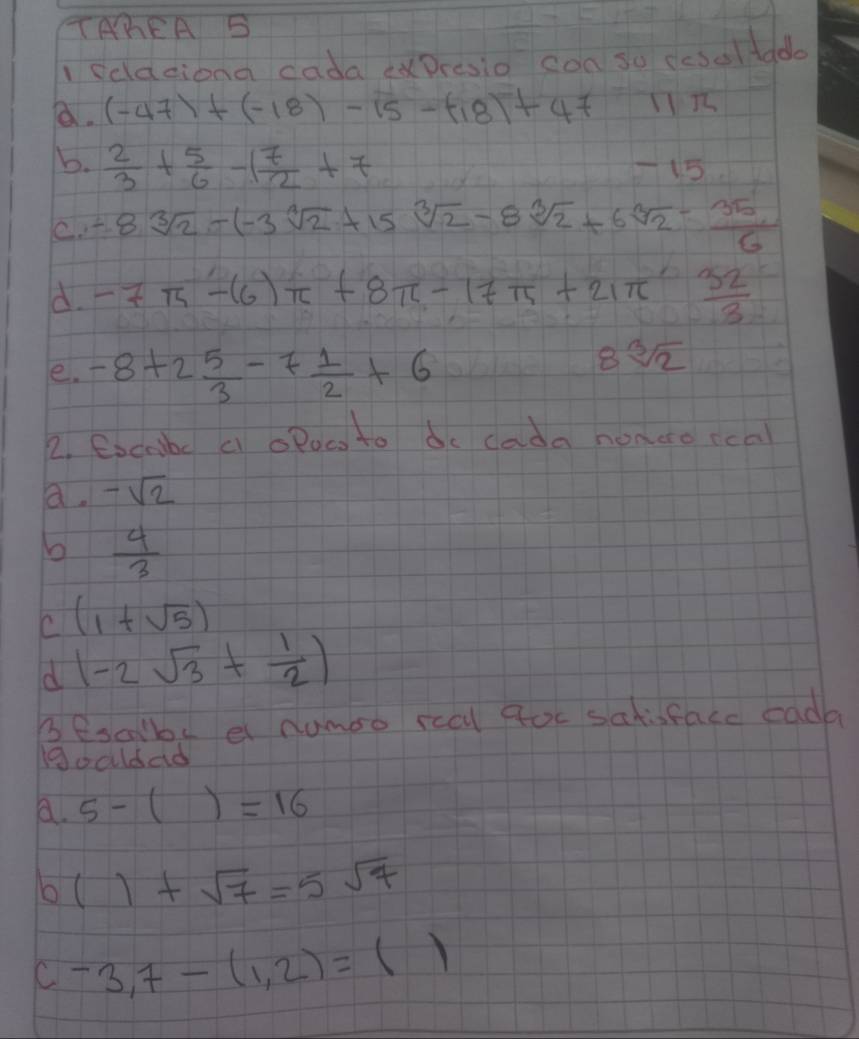 TAREA 5
1 relaciona cada expresio con su resultado
a. (-47) + (-18) - 15 - (-18) + 47 11π
b. 2/3 + 5/6 - (7/2 + 7 -15
c. -8 ∛2 - (-3 ∛2 + 15 ∛2 - 8 ∛2 + 6 ∛2 - 35/6
d. -7 π - (6) π + 8π - 17 π + 21π 32/3
e. -8 + 2 5/3 - 7 1/2 + 6 8 ∛2
2. Escribe el opuesto de cada numero real
a. -√2
b 4/3
c (1 + √5)
d (-2 √3 + 1/2)
3 Escribe el numero real que satisface cada
igualdad
a. 5 - ( ) = 16
b ( ) + √7 = 5 √7
c -3,7 - (1,2) = ( )